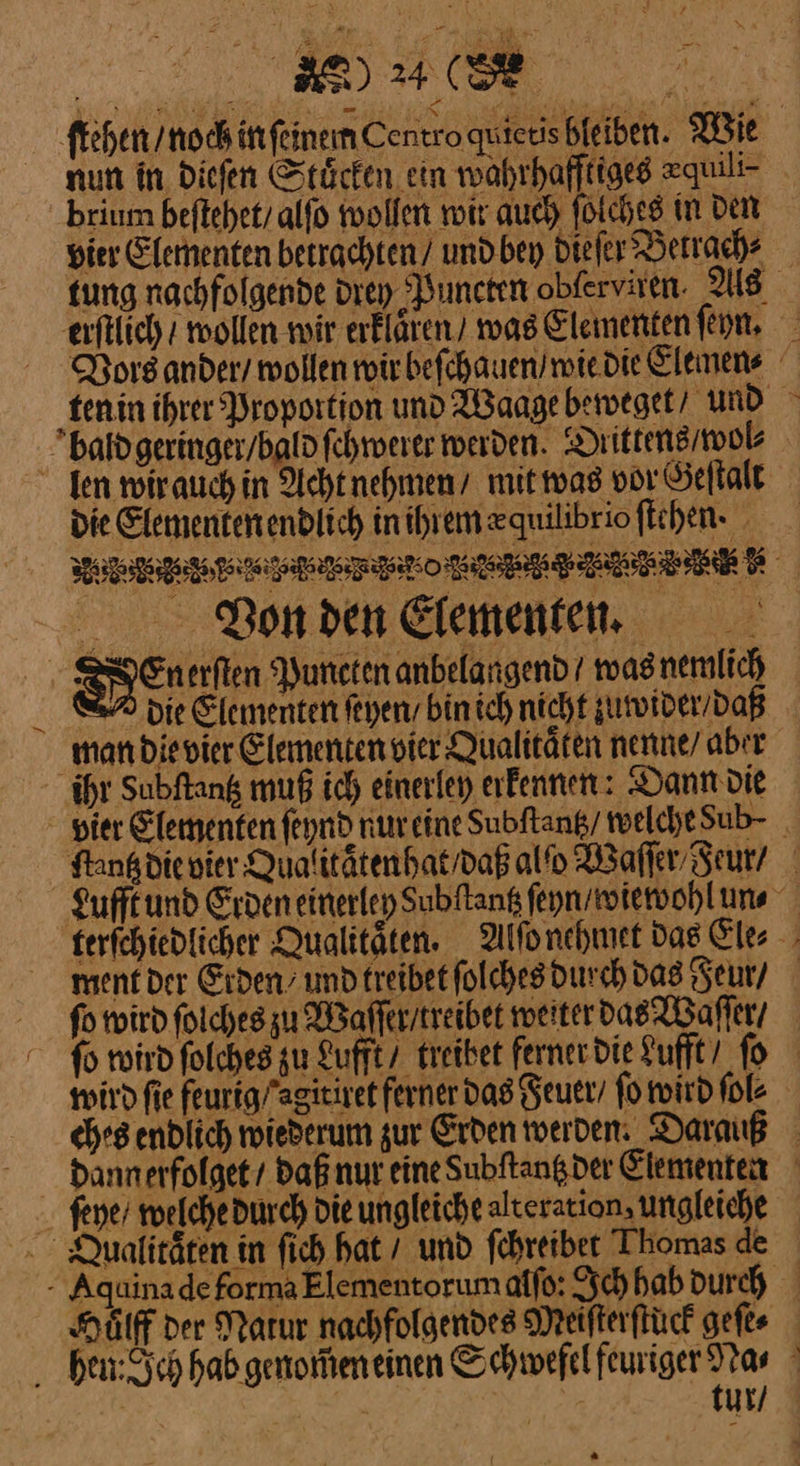 ) 24 (
ſtehen / noch in ſeinem Centro quietis bleiben. Wie
nun in dieſen Stuͤcken ein wahrhafftiges æquili-
brium beſtehet / alſo wollen wir auch ſolches in den
vier Elementen betrachten / und bey dieſer Betrach⸗
tung nachfolgende drey Puncten obſerviren. Als
erſtlich / wollen wir erklaͤren / was Elementen ſeyn.
Vors ander / wollen wir beſchauen / wie die Elemen⸗
ten in ihrer Proportion und Waage beweget / und
bald geringer / bald ſchwerer werden. Drittens / wol⸗
len wir auch in Acht nehmen / mit was vor Geſtalt
die Elementen endlich in ihrem æquilibrio ſtehen.
Von den Elementen.
DEn erſten Puncten anbelangend / was nemlich
die Elementen ſeyen / bin ich nicht zuwider / daß
man die vier Elementen vier Qualitaͤten nenne / aber
ihr Subſtantz muß ich einerley erkennen: Dann die
vier Elementen ſeynd nur eine Subſtantz / welche Sub-
ſtantz die vier Qualitaͤten hat / daß alſo Waſſer / Feur /
Lufft und Erden einerley Subſtantz ſeyn / wiewohl un⸗
terſchiedlicher Qualitaͤten. Alſo nehmet das Ele⸗
ment der Erden / und treibet ſolches durch das Feur /
ſo wird ſolches zu Waſſer / treibet weiter das Waſſer /
ſo wird ſolches zu Lufft / treibet ferner die Lufft / ſo
wird ſie feurig / agitiret ferner das Feuer / ſo wird ſol⸗
ches endlich wiederum zur Erden werden. Darauß
dann erfolget / daß nur eine Subſtantz der Elementen
ſeye / welche durch die ungleiche alteration, ungleiche
Qualitaͤten in ſich hat / und ſchreibet Thomas de
Aquina de forma Elementorum alſo: Ich hab durch
Huͤlff der Natur nachfolgendes Meiſterſtuͤck geſe⸗
hen: Ich hab genom̃en einen Schwefel feuriger Na⸗
tur /